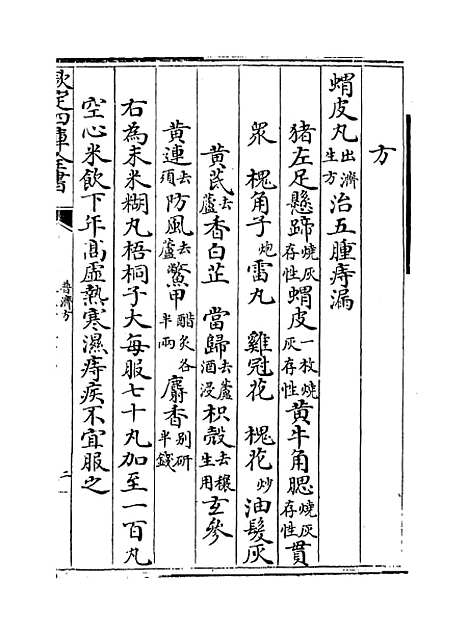 方
蝟皮丸出濟生方治五腫痔漏
猪左足懸蹄燒灰存性蝟皮一枚燒灰存性黄牛角腮燒灰存性貫
衆 槐角子炮雷丸 雞冠花 槐花炒油髮灰
黄芪去蘆香白芷 當歸去蘆酒浸枳殻去穰生用玄參
黄連去須防風去蘆鱉甲醋炙各半兩麝香别研半錢
右為末米糊丸梧桐子大每服七十丸加至一百丸
空心米飲下年高虛熱寒濕痔疾不宜服之
欽定四庫全書
普濟方